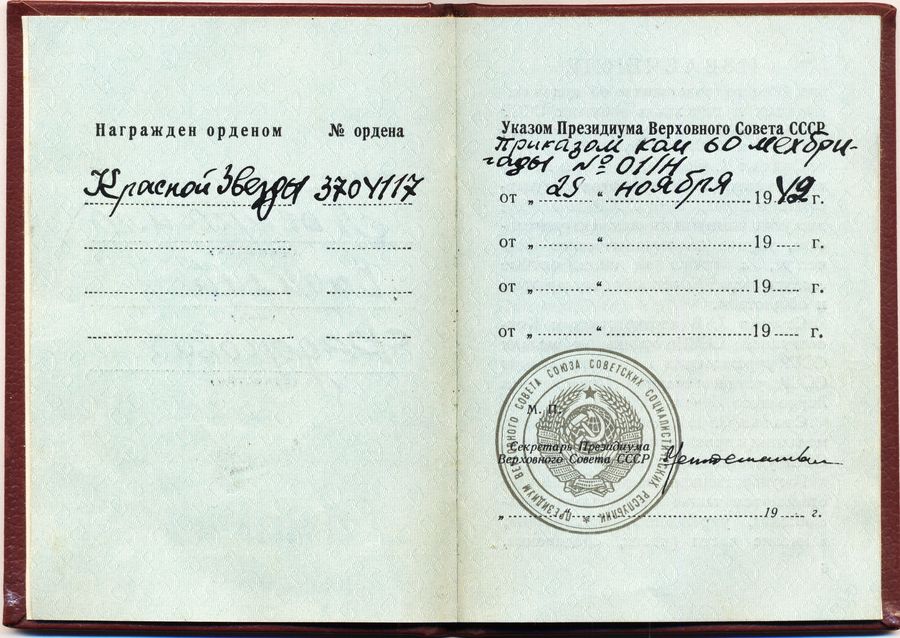 Награжден орденом № ордена
Красной Звезды 3704117
Указом Президиума Верховного Совета СССР
приказом ком 60 мехбри-
гады № 011/Н
от „ 25 “ ноября 1942 г.
от „ “ 19 г.
от „ “ 19 г.
от „ “ 19 г.
ПРЕЗИДИУМ ВЕРХОВНОГО СОВЕТА СОЮЗА СОВЕТСКИХ СОЦИАЛИСТИЧЕСКИХ РЕСПУБЛИК
М. П.
Секретарь Президиума
Верховного Совета СССР
„ “ 19 г.